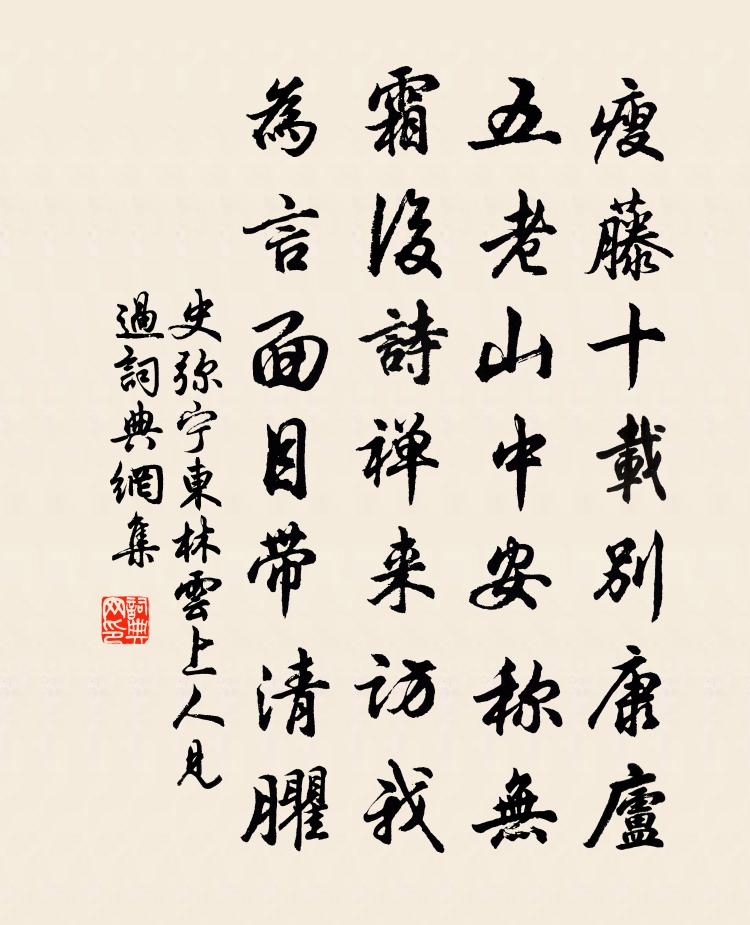 瘦藤十載別康廬
五老山中安称無
霜後詩禅来访我
為言面目带清臞
史弥宁東林雲上人見
過詞典網集
詞典网印